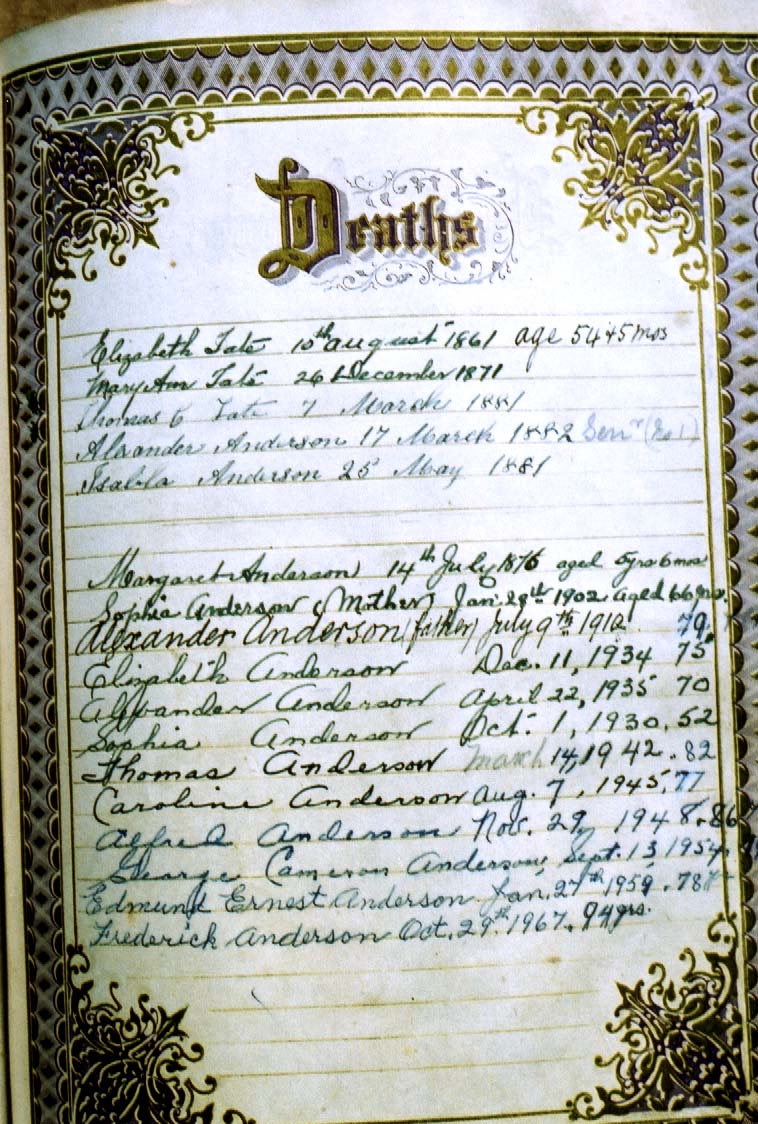 Deaths
Elizabeth Tate 10th august 1861 age 54 & 5 mos
Mary Ann Tate 26 December 1871
Thomas C Tate 7 March 1881
Alxander Anderson 17 March 1882 Senr
Isabla Anderson 25 May 1881
Margaret Anderson 14th July 1876 aged 5yrs 6 mos
Sophia Anderson (Mother) Jan 28th 1902 aged 66 yrs.
Alexander Anderson (father) July 9th 1912 79
Elizabeth Anderson Dec. 11, 1934 75
Alexander Anderson April 22, 1935 70
Sophia Anderson Oct. 1, 1930. 52
Thomas Anderson March 14, 1942. 82
Caroline Anderson Aug. 7, 1945. 77
Alfred Anderson Nov. 29, 1948. 86
George Cameron Anderson, Sept. 13, 1954.
Edmund Ernest Anderson Jan. 27th 1959. 78
Frederick Anderson Oct. 29th 1967. 94 yrs.